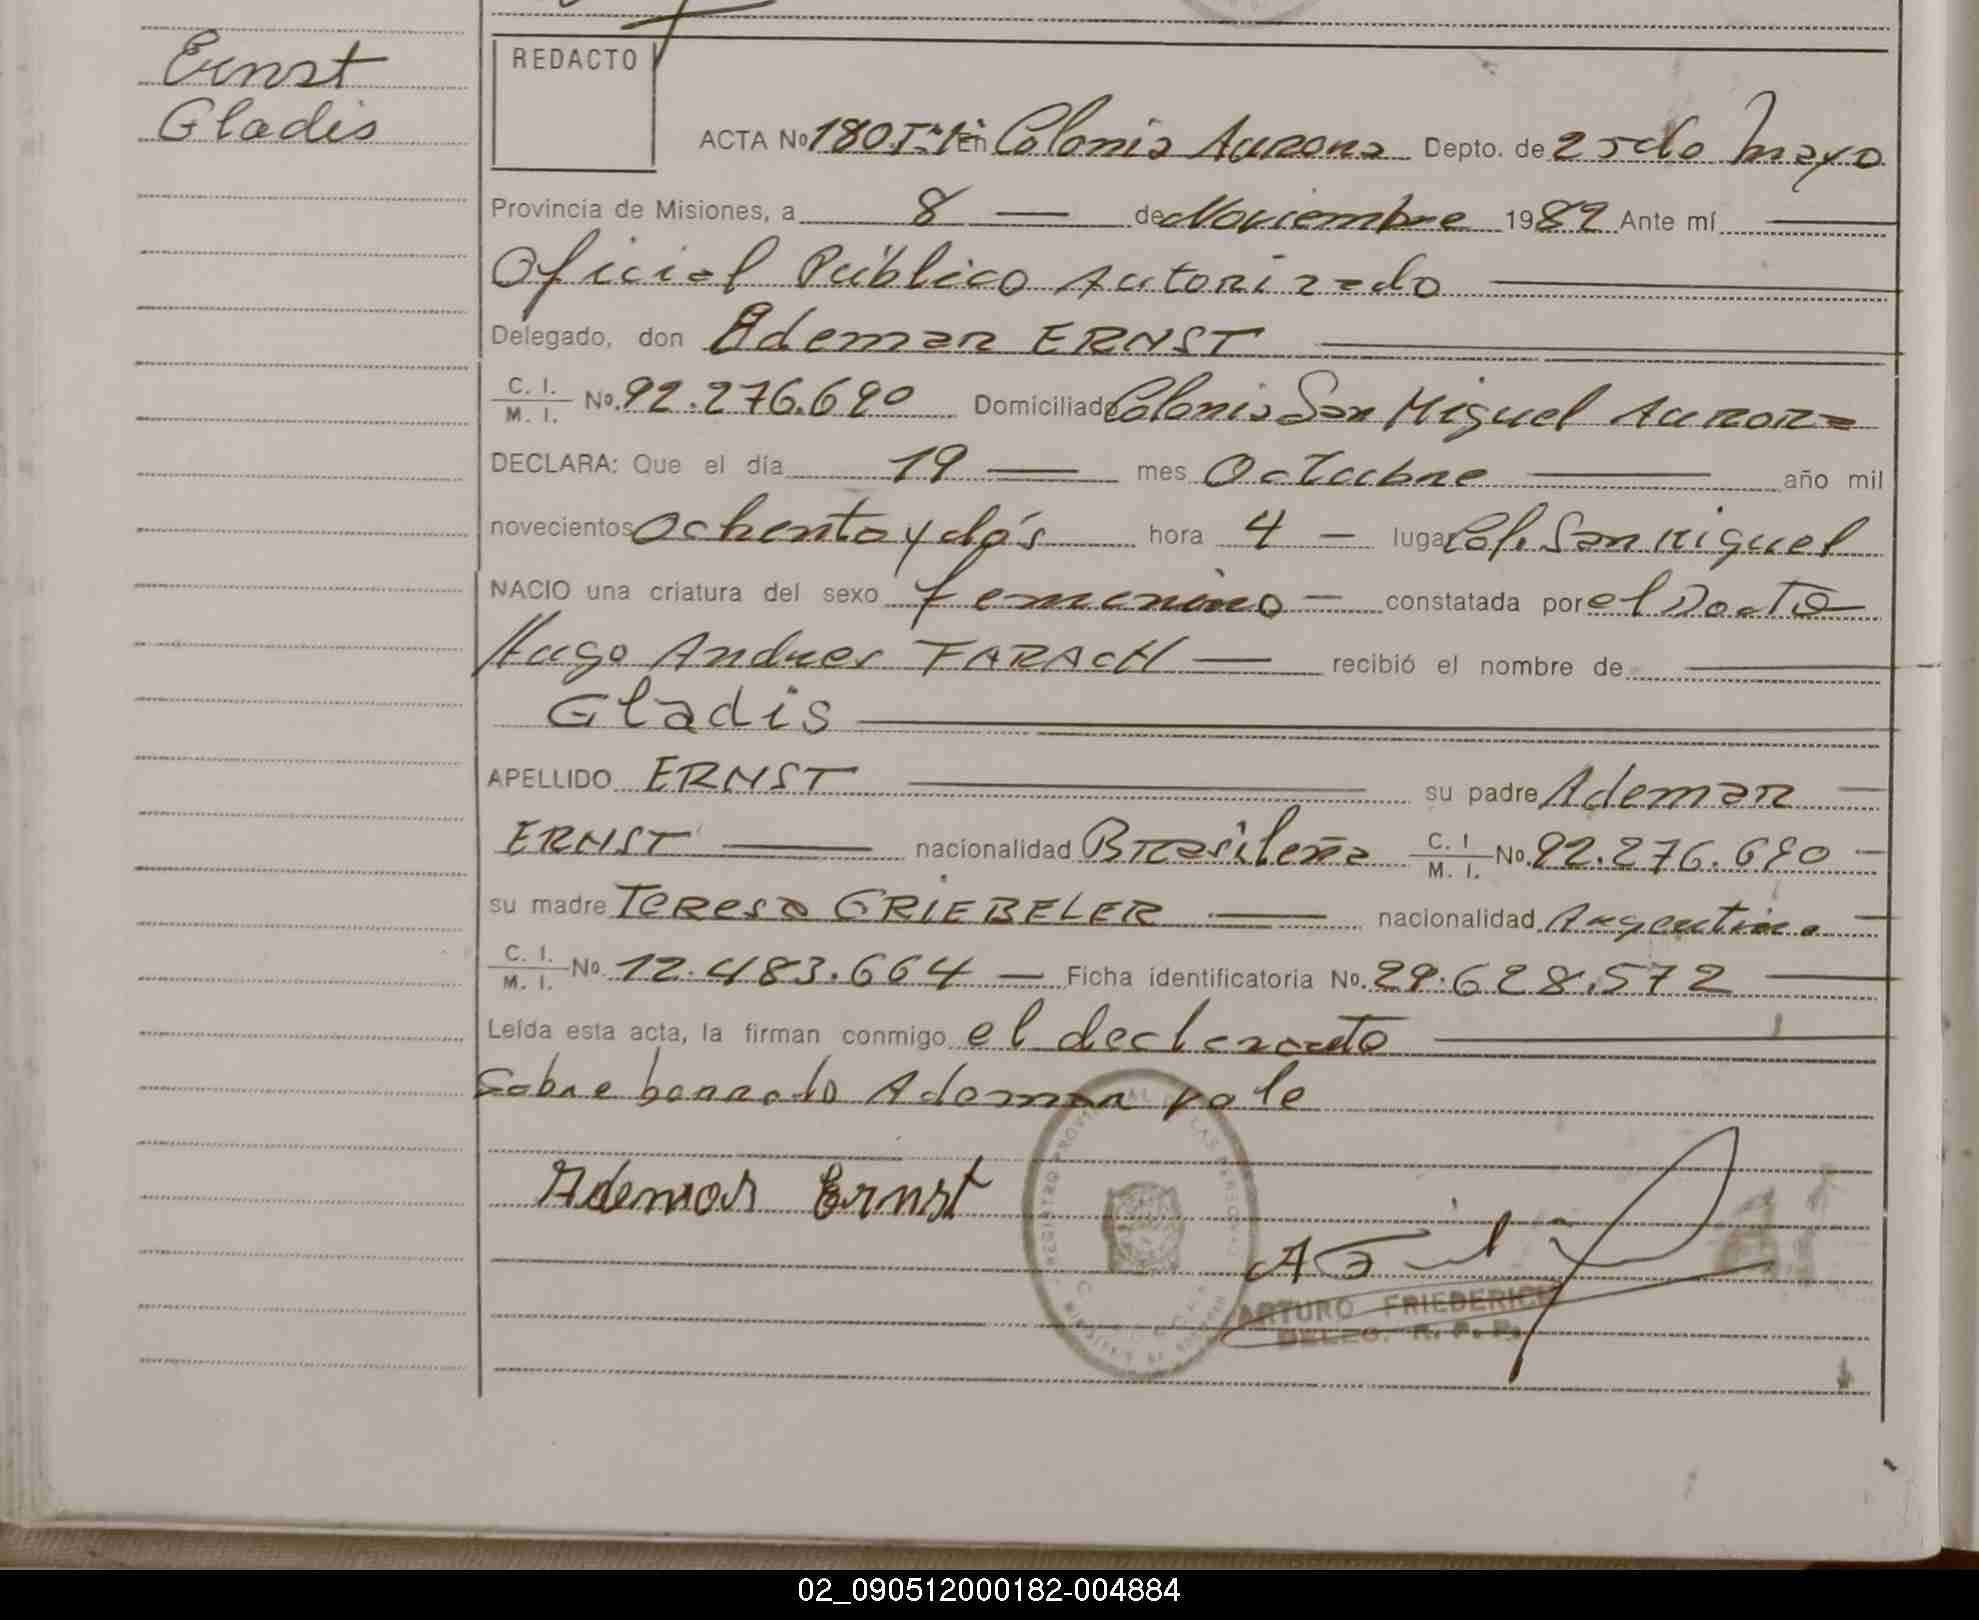 Ernst
Gladis
REDACTO
ACTA No 180 Tº 1 En Colonia Aurora Depto. de 25 de Mayo
Provincia de Misiones, a 8 — de Noviembre 1982 Ante mí —
Oficial Público Autorizado —
Delegado, don Ademar ERNST —
C. I. / M. I. No. 92.276.690 Domiciliado Colonia San Miguel Aurora
DECLARA: Que el día 19 — mes Octubre — año mil
novecientos ochenta y dós hora 4 — lugar Col. San Miguel
NACIO una criatura del sexo femenino — constatada por el Doctor
Hugo Andres FARACH — recibió el nombre de —
Gladis —
APELLIDO ERNST — su padre Ademar —
ERNST — nacionalidad Brasileña C. I / M. I. No. 92.276.690 —
su madre Teresa GRIEBELER — nacionalidad Argentina —
C. I. / M. I. No. 12.483.664 — Ficha identificatoria No. 29.628.572 —
Leída esta acta, la firman conmigo el declarante —
Sobre borrado Ademar vale
Ademar Ernst
REGISTRO PROVINCIAL DE LAS PERSONAS
ARTURO FRIEDERICH
DELEG. R. P. P.
02_090512000182-004884